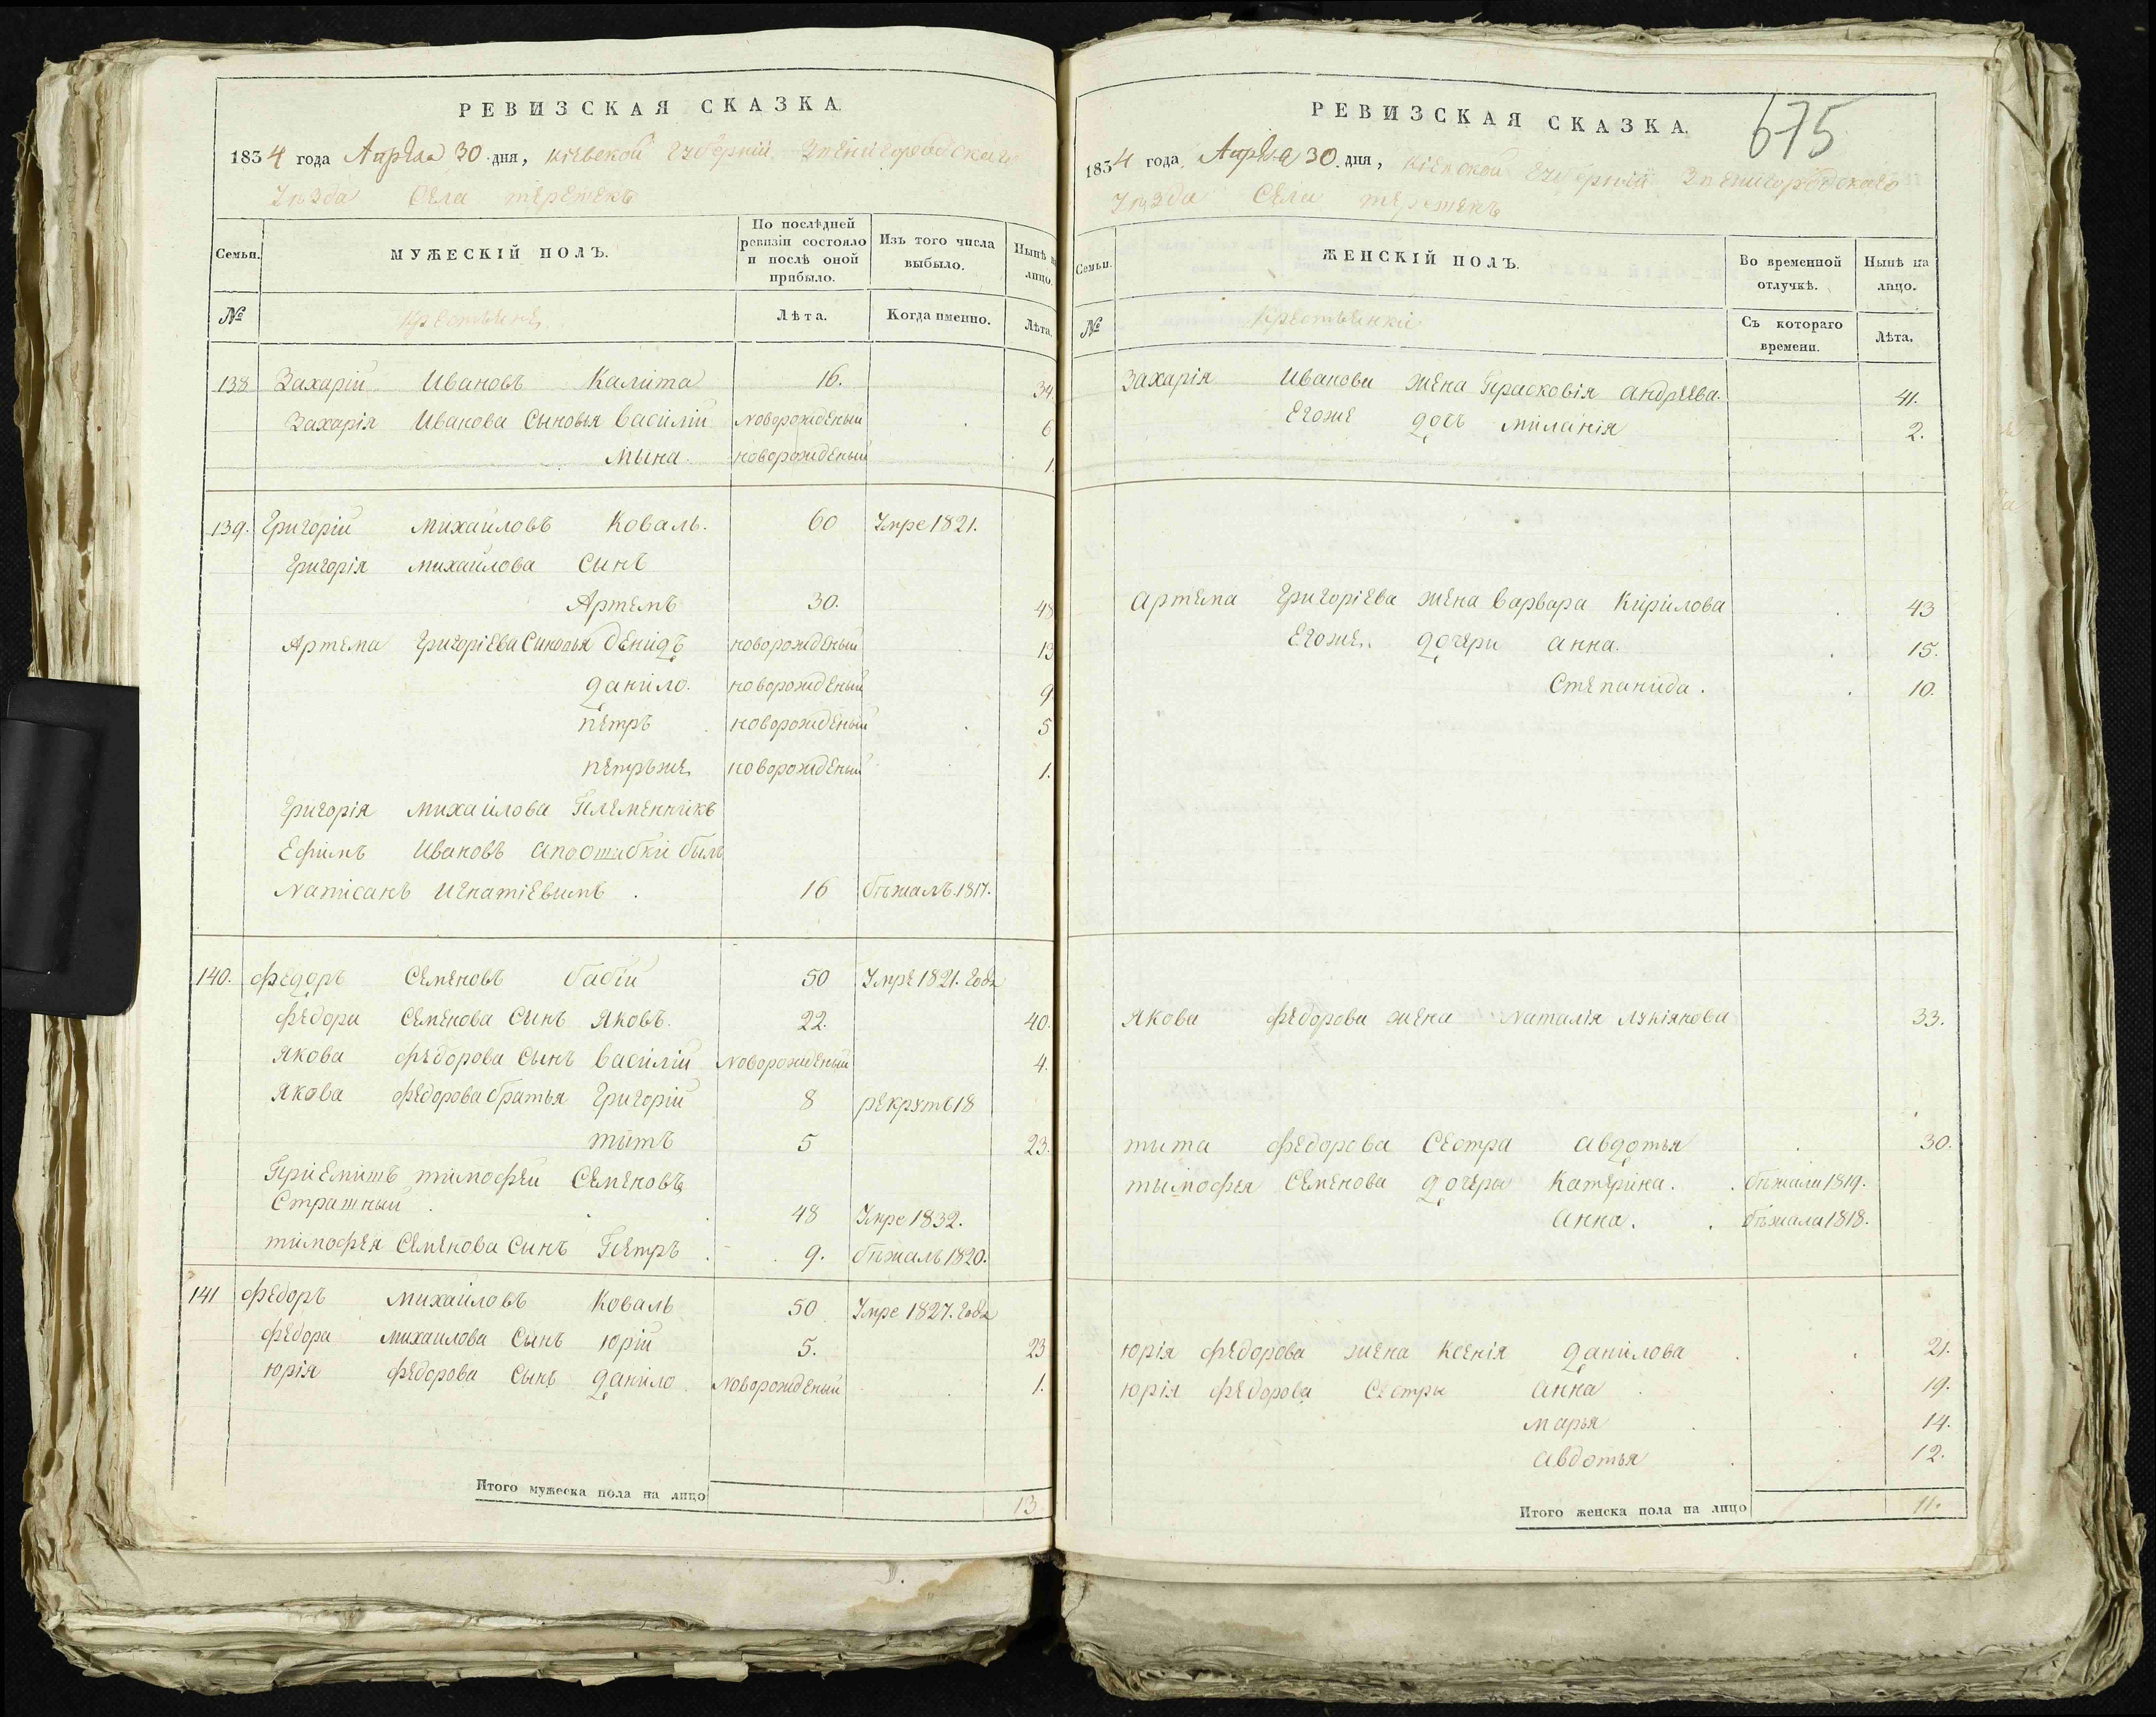 РЕВИЗСКАЯ СКАЗКА.
1834 года Апреля 30 дня, Кіевской Губерніи Звенигородскаго
Уѣзда Села Терешекъ
Семьи.
МУЖЕСКІЙ ПОЛЪ.
По послѣдней ревизіи состояло и послѣ оной прибыло.
Изъ того числа выбыло.
Нынѣ на лицо.
№
Крестьяне
Лѣта.
Когда именно.
Лѣта.
138 Захарій Ивановъ Калита 16. 34.
Захарія Иванова Сыновья Василій новорожденый 6
Мина новорожденый 1.
139. Григорій Михайловъ Коваль. 60 Умре 1821.
Григорія Михайлова Сынъ
Артемъ 30. 48
Артема Григоріева Синовья Денидъ новорожденый 13
Данило. новорожденый 9
Петръ новорожденый 5
Петръже новорожденый 1.
Григорія Михайлова Племенникъ
Ефимъ Ивановъ апоошибки былъ
Написанъ Игнатіевымъ. 16 бѣжалъ. 1817.
140. Федоръ Семеновъ Бабій 50 Умре 1821. Года
Федора Семенова Сынъ Яковъ. 22. 40.
Якова Федорова Сынъ Василій новорожденый 4.
Якова Федорова братья Григорій 8 рекрутъ 18
Титъ 5 23.
Пріемишъ Тимофей Семеновъ
Страшный 48 Умре 1832.
Тимофея Семенова Сынъ Петръ 9. бѣжалъ 1820.
141 Федоръ Михайловъ Коваль 50 Умре 1827. Года
Федора Михайлова Сынъ Юрій 5. 23
Юрія Федорова Сынъ Данило новорожденый 1.
Итого мужеска пола на лицо 13
675
РЕВИЗСКАЯ СКАЗКА.
1834 года Апреля 30 дня, Кіевской Губерніи Звенигородскаго
Уѣзда Села Терешекъ
Семьи.
ЖЕНСКІЙ ПОЛЪ.
Во временной отлучкѣ.
Нынѣ на лицо.
№
Крестьянки
Съ котораго времени.
Лѣта.
Захарія Иванова жена Прасковія Андреева. 41.
Егоже дочь Миланія 2.
Артема Григоріева жена Варвара Кирилова 43
Егоже. дочери Анна. 15.
Степанида. 10.
Якова Федорова жена Наталія Лукіянова 33.
Тита Федорова Сестра Авдотья 30.
Тымофея Семенова дочеры Катерина. бѣжала 1819.
Анна. бѣжала 1818.
Юрія Федорова жена Ксенія Данилова 21.
Юрія Федорова Сестры Анна 19.
Марья 14.
Авдотья 12.
Итого женска пола на лицо 11.